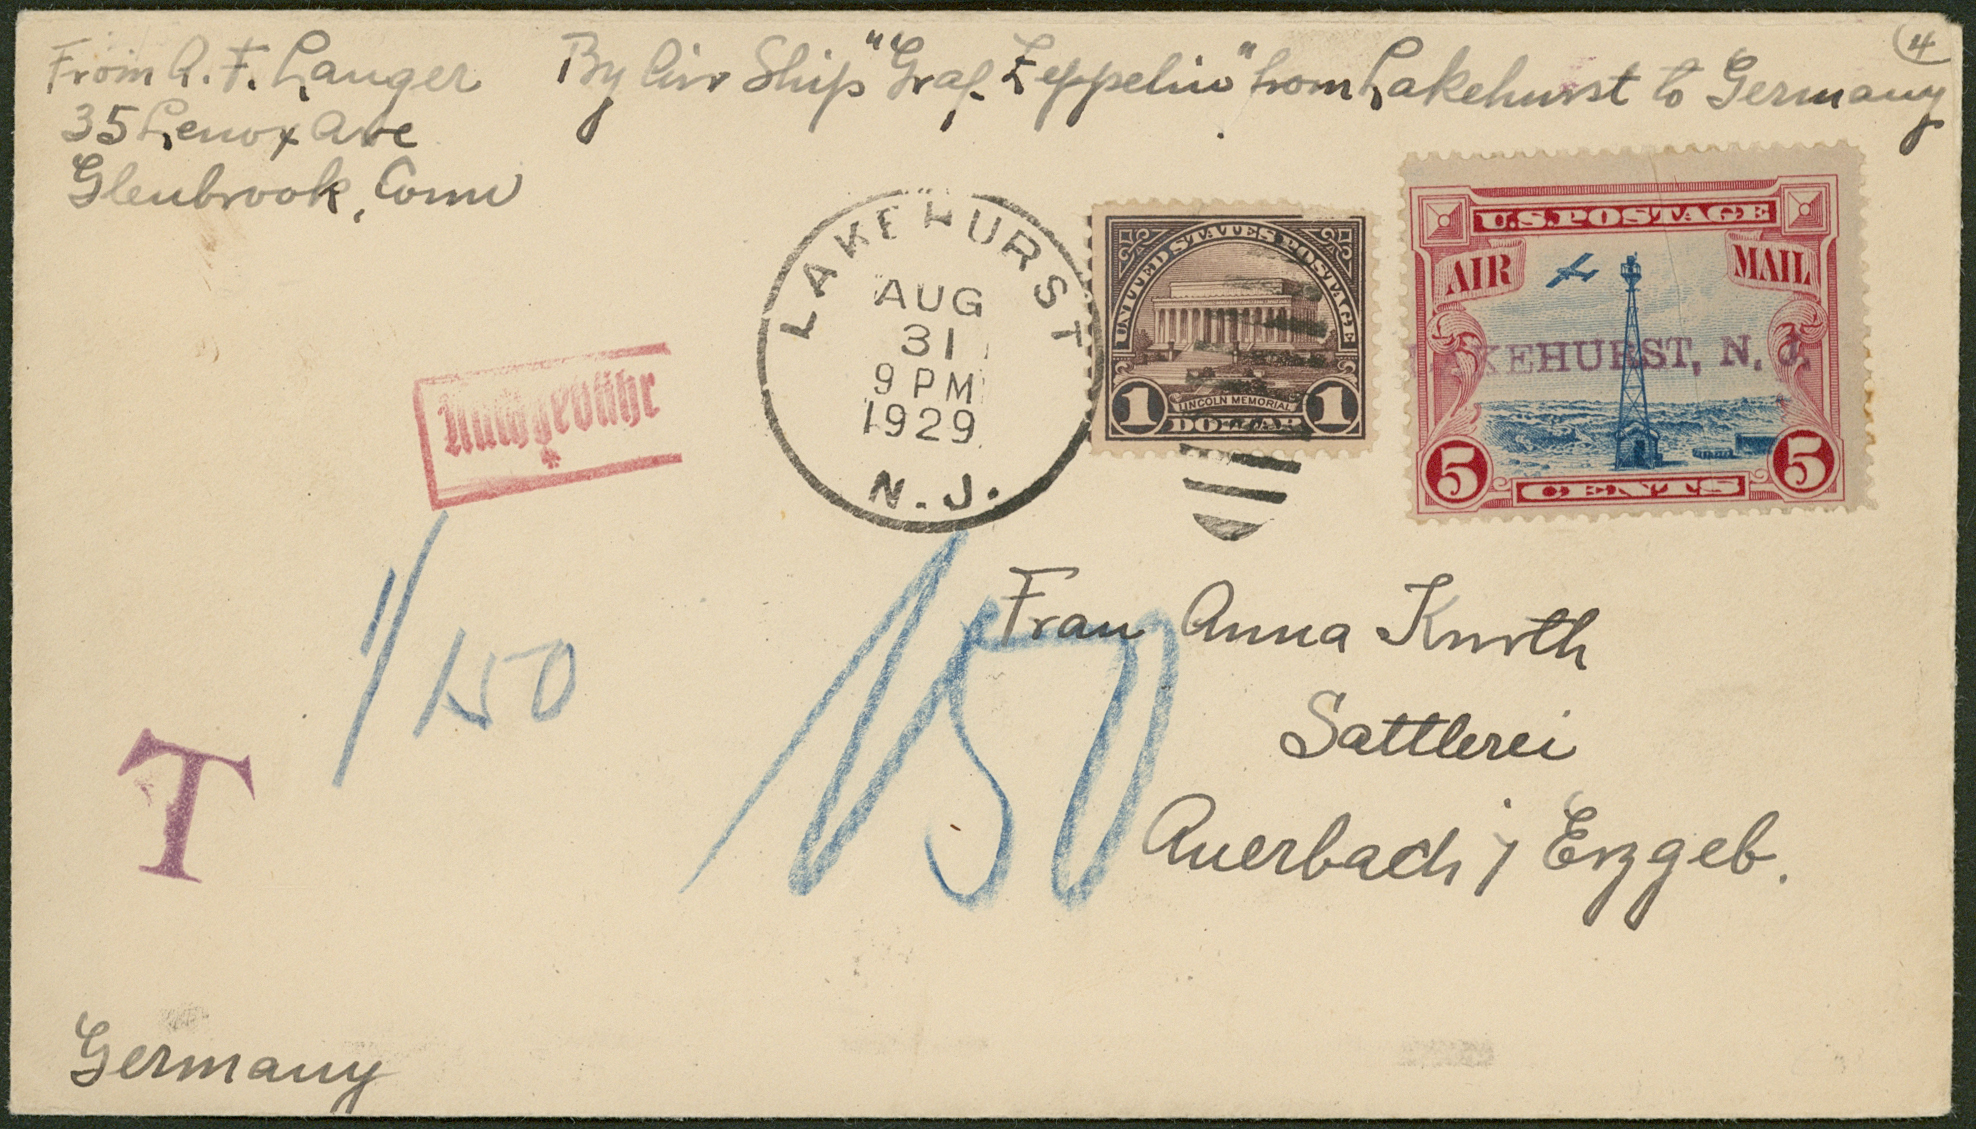 From A. F. Langer
35 Lenox Ave
Glenbrook, Conn
By Air Ship "Graf Zeppelin" from Lakehurst to Germany
4
LAKEHURST
AUG
31
9 PM
1929
N. J.
UNITED STATES POSTAGE
LINCOLN MEMORIAL
1 DOLLAR 1
U.S. POSTAGE
AIR MAIL
LAKEHURST, N. J.
5 CENTS 5
Nachgebühr
1/150
150
T
Frau Anna Kurth
Sattlerei
Auerbach i/ Erzgeb.
Germany